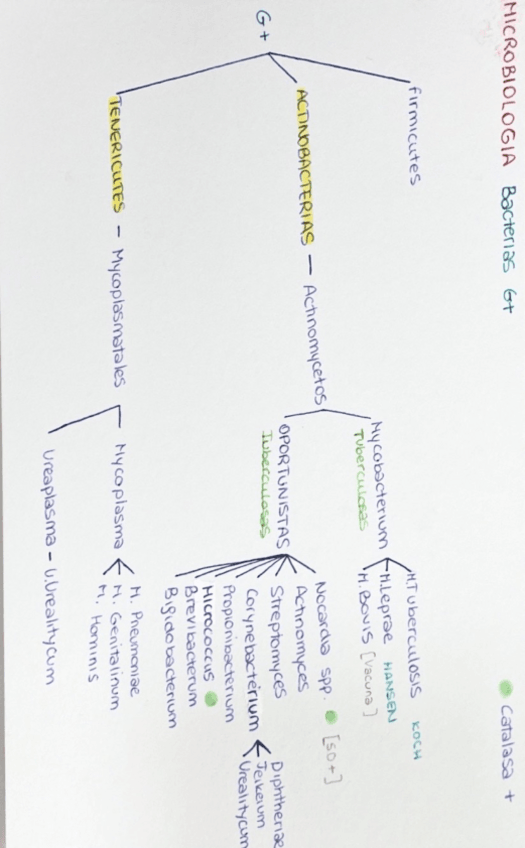 MICROBIOLOGIA Bacterias G+
Catalasa +
G+
Firmicutes
ACTINOBACTERIAS - Actinomycetos
Mycobacterium
Tuberculosas
M.Tuberculosis KOCH
M.Leprae HANSEN
M.Bovis [Vacuna]
OPORTUNISTAS
Tuberculosas
Nocardia spp. [SO+]
Actinomyces
Streptomyces
Corynebacterium
Diphtheriae
Jeikeium
Urealitycum
Propionibacterium
Micrococcus
Brevibacterum
Bifidobacterium
TENERICUTES - Mycoplasmatales
Mycoplasma
M. Pneumoniae
M. Genitalinum
M. Hominis
Ureaplasma - U.Urealitycum